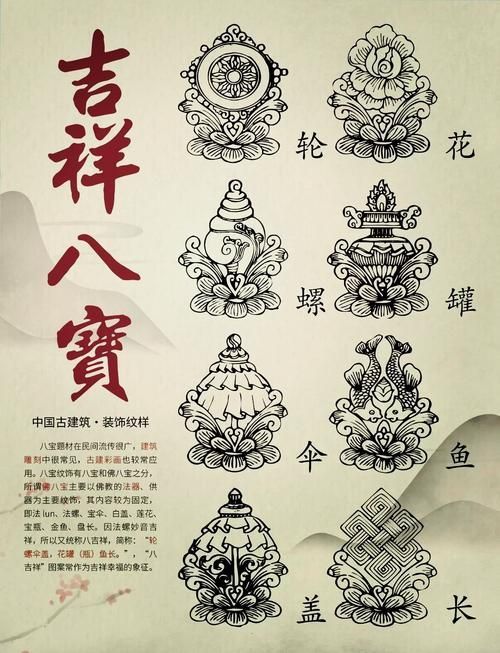 吉祥八寳
中国古建筑·装饰纹样
八宝题材在民间流传很广，建筑
雕刻中很常见，古建彩画也较常应
用。八宝纹饰有八宝和佛八宝之分，
所谓佛八宝主要以佛教的法器、供
器为主要纹饰，其内容较为固定，
即法lun、法螺、宝伞、白盖、莲花、
宝瓶、金鱼、盘长。因法螺妙音吉
祥，所以又统称八吉祥，简称：“轮
螺伞盖，花罐（瓶）鱼长。”，“八
吉祥”图案常作为吉祥幸福的象征。
轮
花
螺
罐
伞
鱼
盖
长